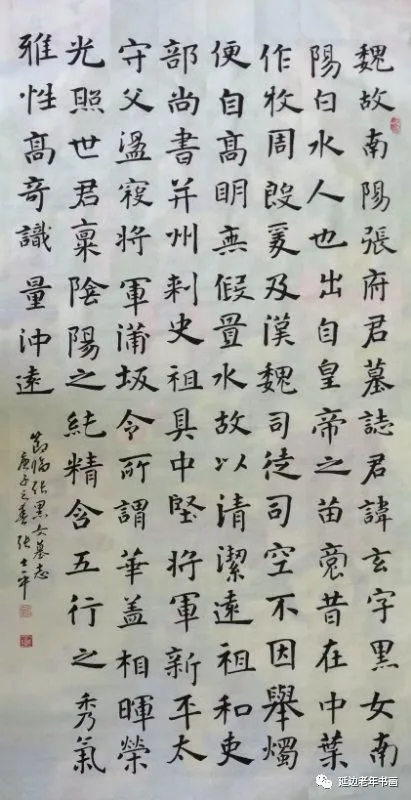 魏故南陽張府君墓誌君諱玄字黑女南
陽白水人也出自皇帝之苗裔昔在中葉
作牧周殷爰及漢魏司徒司空不因舉燭
便自高明無假置水故以清潔遠祖和吏
部尚書并州刺史祖具中堅將軍新平太
守父盪寇將軍蒲坂令所謂華蓋相暉榮
光照世君稟陰陽之純精含五行之秀氣
雅性高奇識量沖遠
節临张黑女墓志
庚子之春张士平
延边老年书画